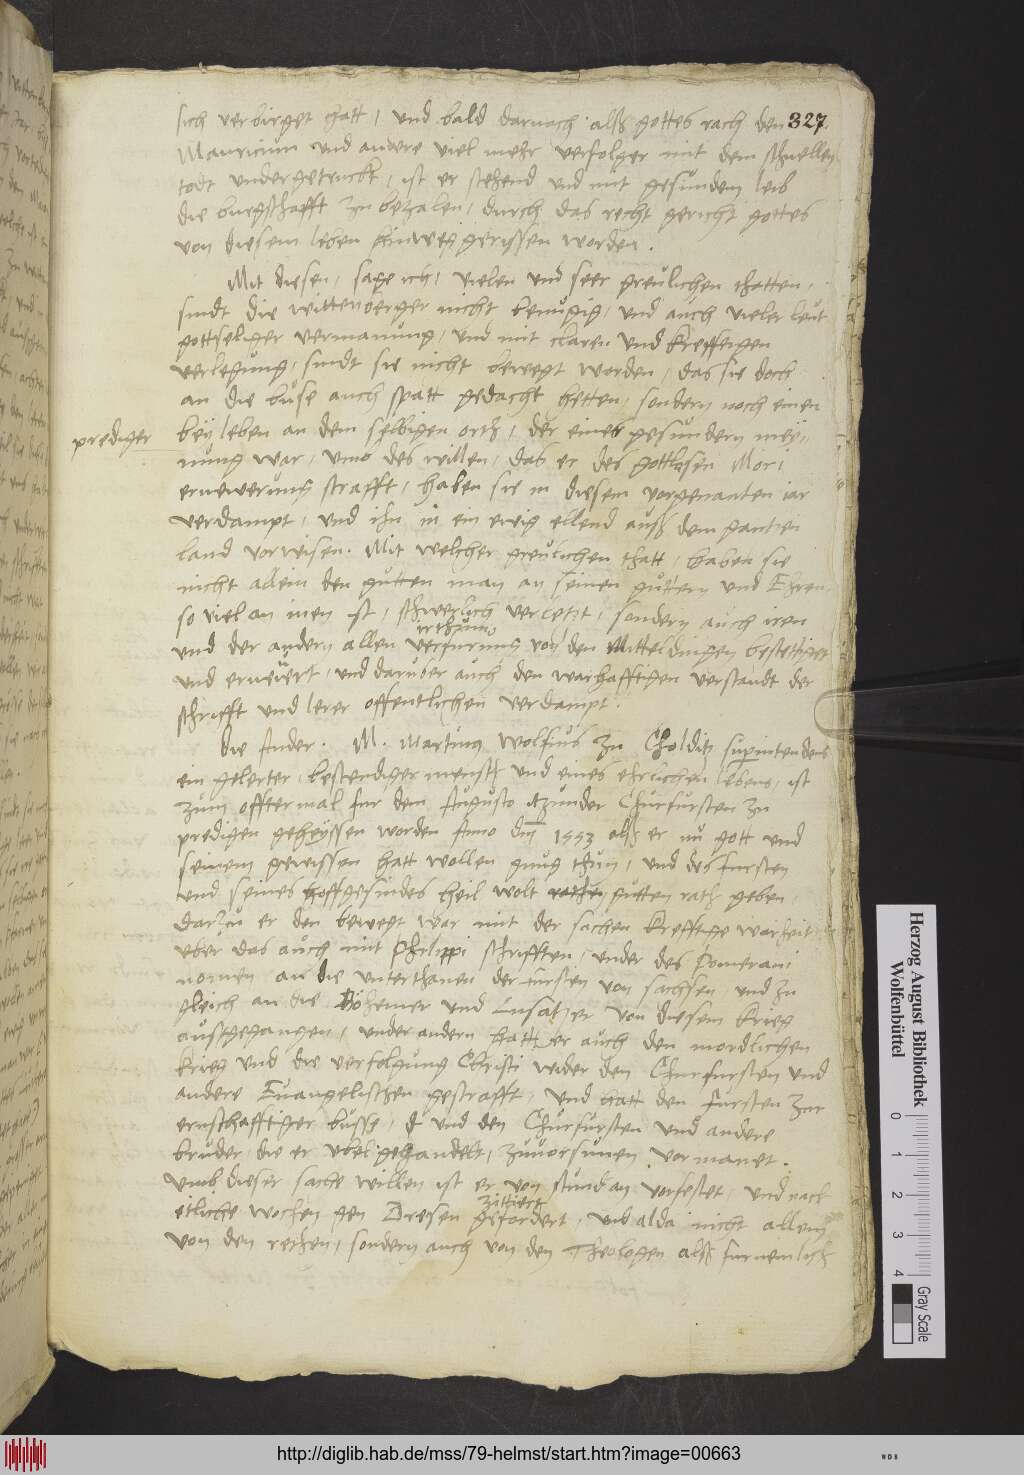 327
sich verbirget hatt, und bald darnach alß gottes rach den
Mauricium und andere viel mehr verfolger mit dem schnellen
todt undergetruckt, ist er stehend und mit gesundem leib
die burgschafft zu bezalen, durch das recht gericht gottes
von diesem leben hinweg gerissen worden.
Mit diesen, sage ich, vielen und seer greulichen thatten,
sindt die wittenberger nicht benugig, und auch vieler leut
gottseliger vermanung, und mit claren und kreffeigen
verlegung, sindt sie nicht bewegt worden, das sie doch
an die buse auch spatt gedacht hetten, sondern noch einen
prediger
bey leben an dem selbigen orth, der eines gesundern mey,
nung war, umb des willen, das er des gottlosen Mori
ernewerung strafft, haben sie in diesem vorgenanten iar
verdampt, und ihn in ein ewig ellend auß dem gantzen
land vorwisen. Mit welcher greulichen thatt, haben sie
nicht allein den gutten man an seinen guttern und Ehren,
so viel an inen ist, schwerlich verletzt, sondern auch iren
irthumb
und der andern allen verfurung von den Mitteldingen bestettiget
und ernewert, und daruber auch den warhafftigen verstandt der
schrifft und lerer offentlichen verdampt.
Die Ander. M. Martinus Wolfius zu Cholditz superintendens
ein gelerter, bestendiger mensch und eines ehrlichen lebens, ist
zum offtermal fur dem Augusto itzunder Churfursten zu
predigen geheyssen worden Anno dm 1553 alß er nu gott und
seinem gewissen hatt wollen gnug thun, und des fursten
und seines hoffgesindes heil wolt rathen gutten rath geben,
darzu er den bewegt war mit der sachen krefftige warheit
uber das auch mit Philippi schrifften, under des Pomerani
nomen an die unterthanen der fursten von sachsen, und zu
gleich an die Böhemer und Lusatzer von diesem krieg
ausgegangen, under andern hatt er auch den mordlichen
krieg und die verfolgung Christi wider den Churfursten und
andere Evangelischen gestrafft, und hatt den fursten zur
ernsthafftiger busse, und den Churfursten und andere
bruder, die er ubel gehandelt, zuuorsunen vormanet.
Umb dieser sache willen ist er von stund an vorfestet, und nach
zittiert
etliche wochen gen Dresen gefordert, und alda nicht allein
von den rethen, sondern auch von den Theologen alß furnemlich
Herzog August Bibliothek
Wolfenbüttel
0 1 2 3 4
Gray Scale
http://diglib.hab.de/mss/79-helmst/start.htm?image=00663
WDB